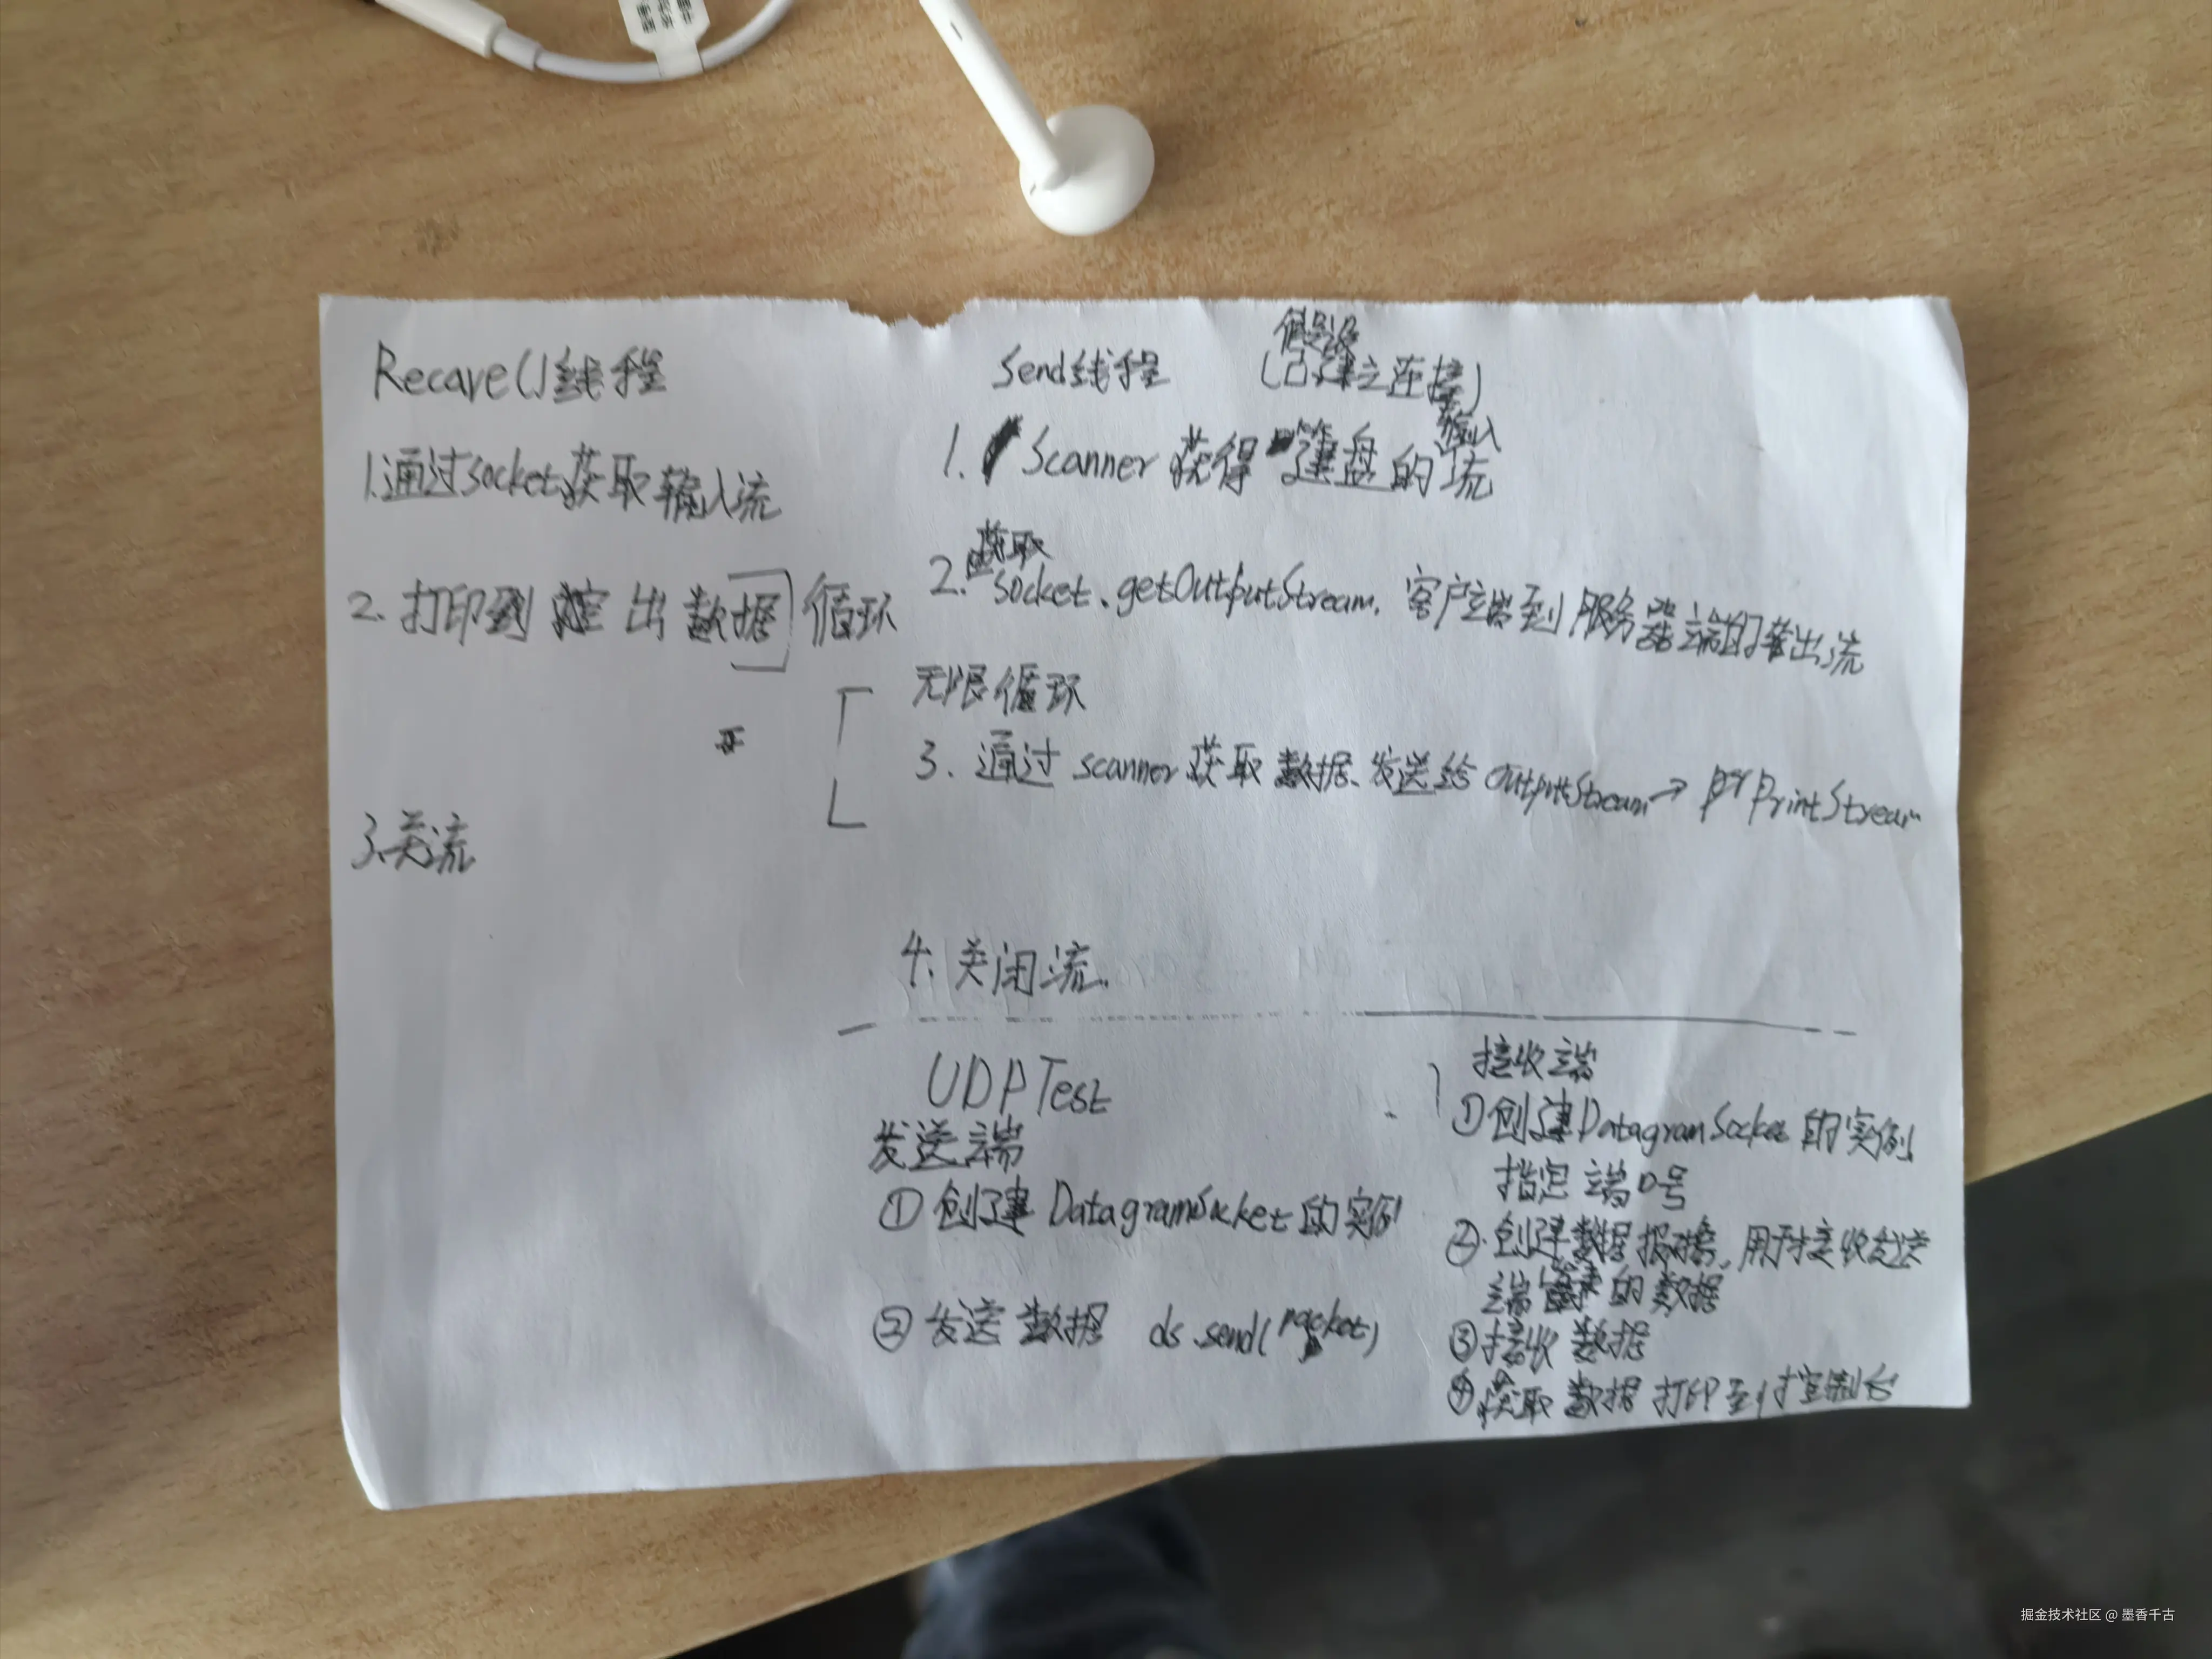 Recave()线程
1.通过socket获取输入流
2. 打印到 出数据 循环
3.关流
Send线程 (已建立连接)
假设
1. Scanner 获得 键盘的流
输入
获取
2. socket.getOutputStream. 客户端到服务器端的输出流
无限循环
3. 通过 scanner 获取 数据、发送给 OutputStream → PrintStream
4. 关闭流.
UDPTest
发送端
① 创建 DatagramSocket 的实例
② 发送数据 ds.send(packet)
接收端
①创建DatagramSocket的实例
指定端口号
②.创建数据报 用于接收发送
端 的数据
③接收数据
④获取数据打印到控制台
掘金技术社区 @ 墨香千古